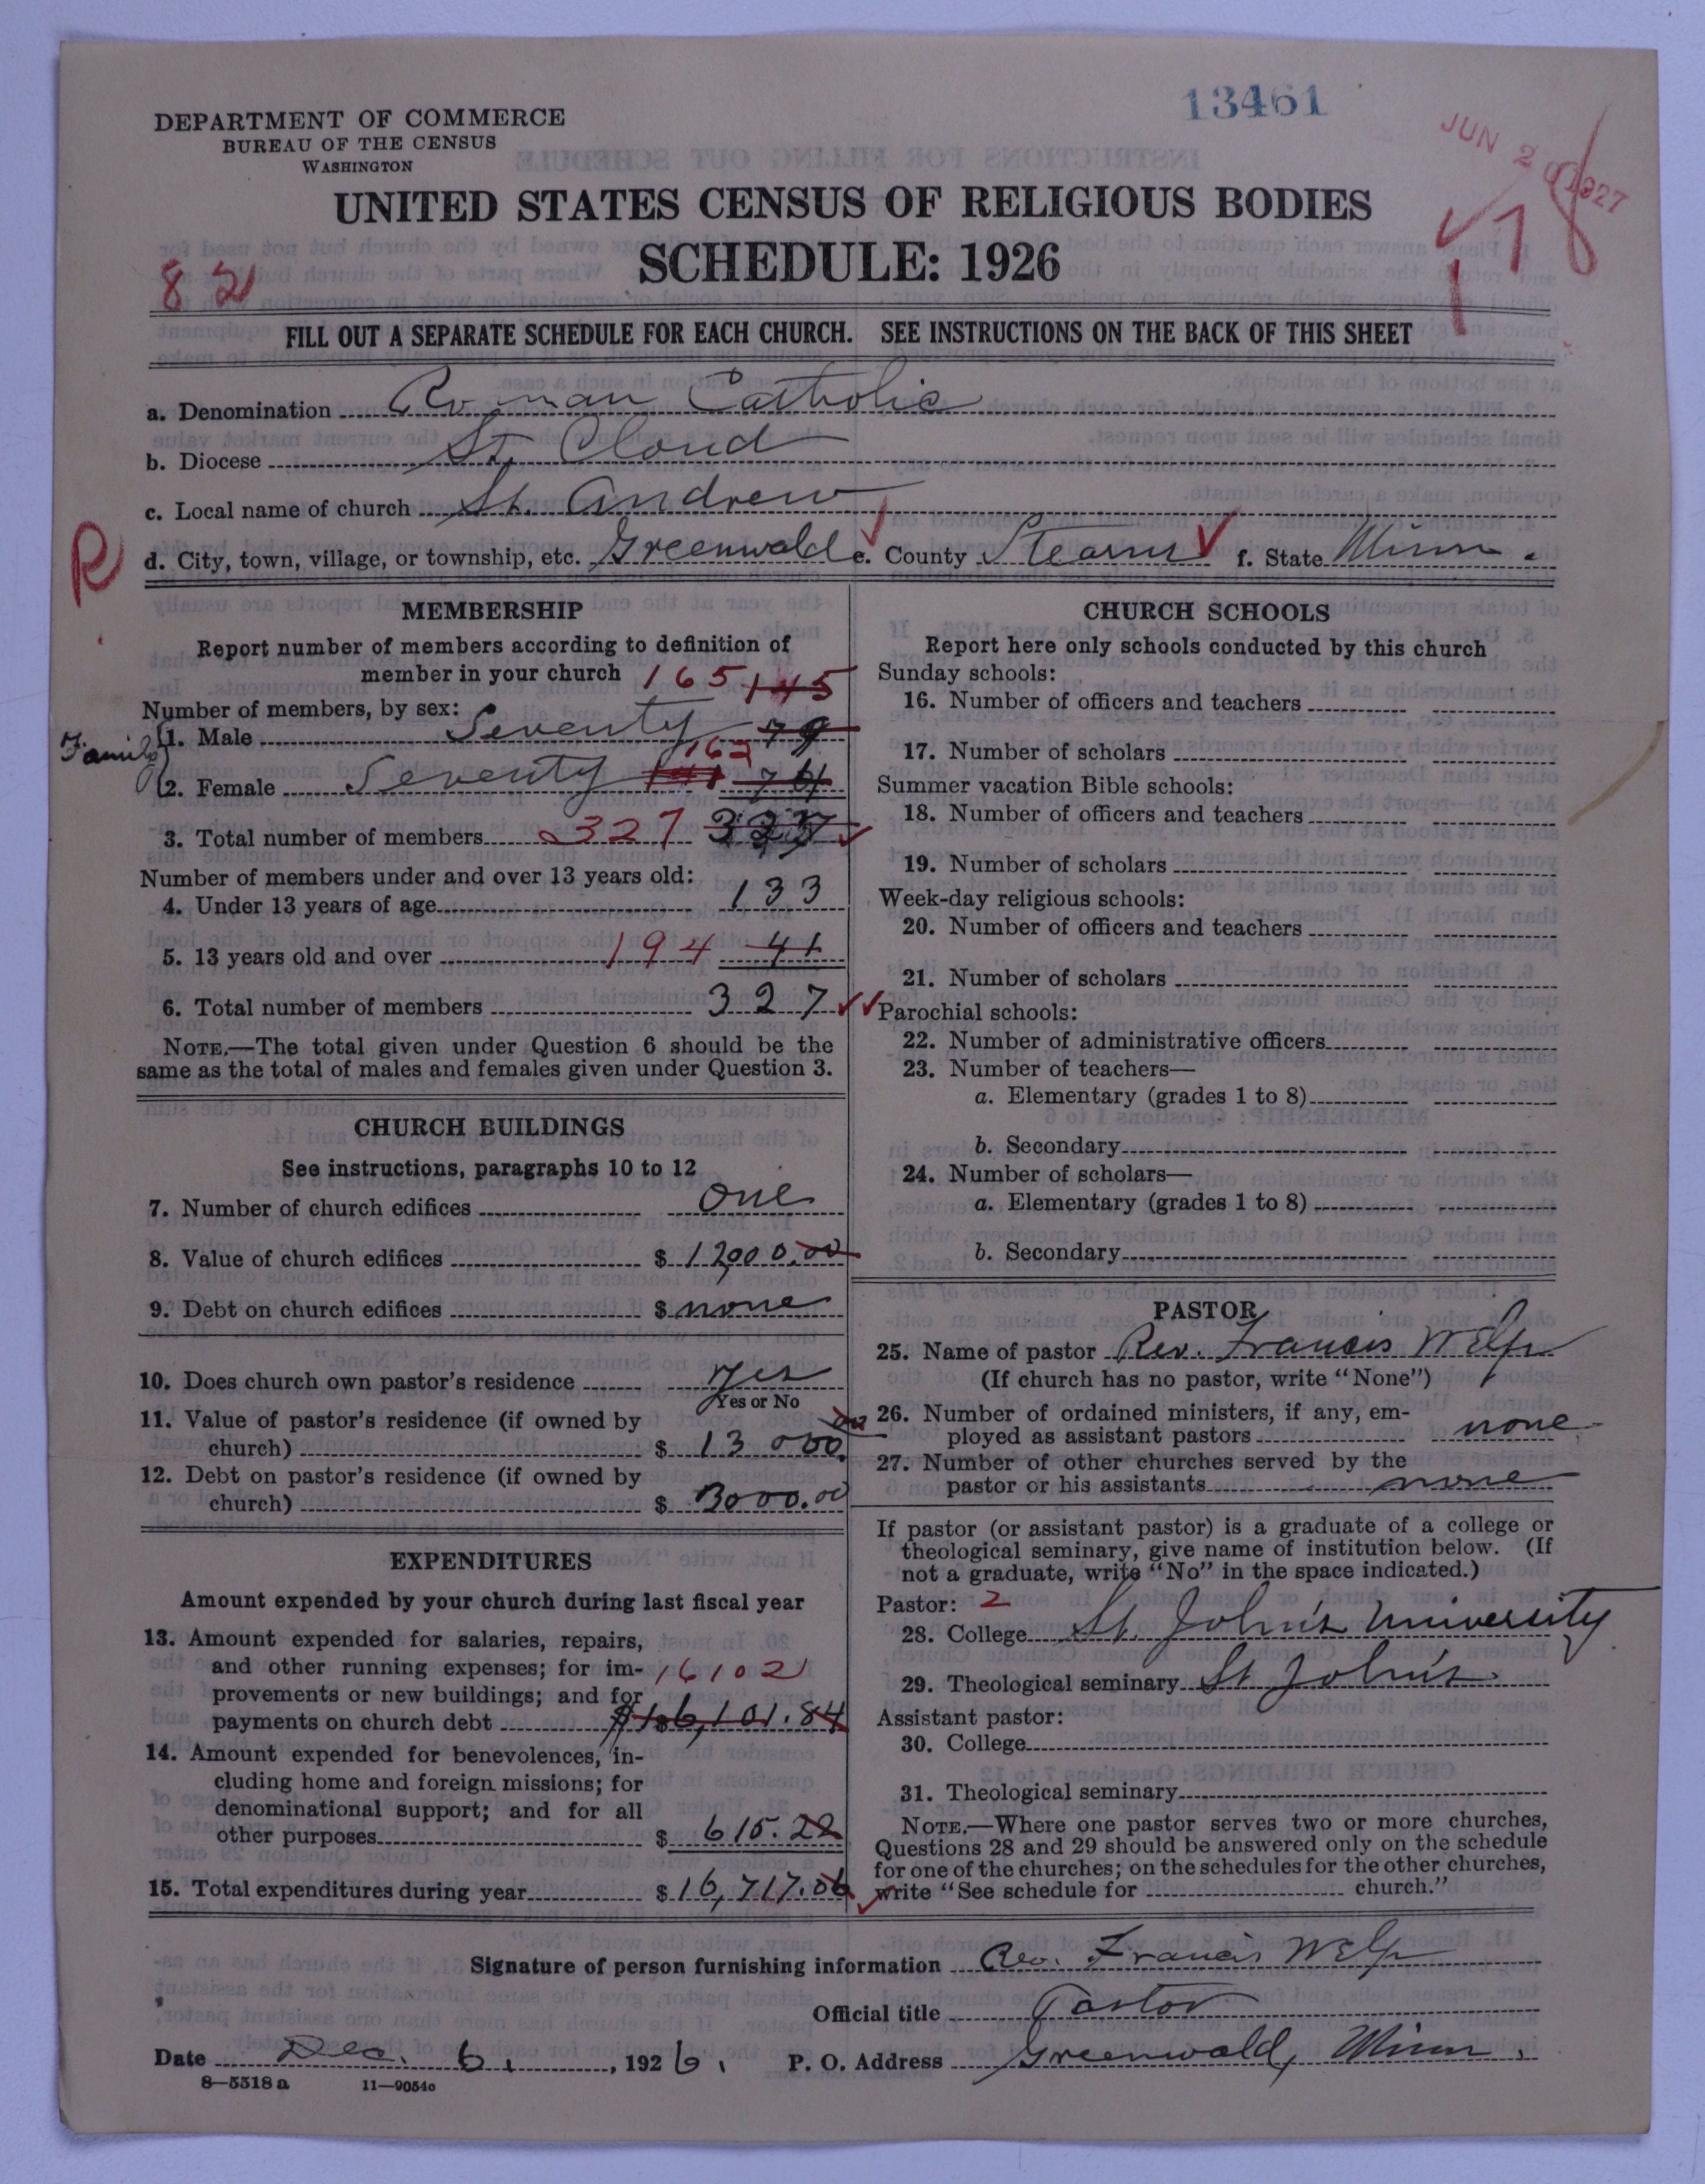 13461
DEPARTMENT OF COMMERCE
BUREAU OF THE CENSUS
WASHINGTON
JUN 20 1927
UNITED STATES CENSUS OF RELIGIOUS BODIES
SCHEDULE: 1926
82
FILL OUT A SEPARATE SCHEDULE FOR EACH CHURCH. SEE INSTRUCTIONS ON THE BACK OF THIS SHEET
a. Denomination Roman Catholic
b. Diocese St. Cloud
c. Local name of church St. Andrew
R
d. City, town, village, or township, etc. Greenwald e. County Stearns f. State Minn.
MEMBERSHIP
Report number of members according to definition of
member in your church 165 145
Number of members, by sex:
Family
1. Male Seventy 79
162
2. Female Seventy 141 74
3. Total number of members 327 327
Number of members under and over 13 years old:
4. Under 13 years of age 133
5. 13 years old and over 194 41
6. Total number of members 327
NOTE.—The total given under Question 6 should be the
same as the total of males and females given under Question 3.
CHURCH BUILDINGS
See instructions, paragraphs 10 to 12
7. Number of church edifices one
8. Value of church edifices $ 12000.00
9. Debt on church edifices $ none
10. Does church own pastor's residence yes
Yes or No
11. Value of pastor's residence (if owned by
church) $ 13000.00
12. Debt on pastor's residence (if owned by
church) $ 3000.00
EXPENDITURES
Amount expended by your church during last fiscal year
13. Amount expended for salaries, repairs,
and other running expenses; for im-
provements or new buildings; and for
payments on church debt 16102 $16,101.84
14. Amount expended for benevolences, in-
cluding home and foreign missions; for
denominational support; and for all
other purposes $ 615.22
15. Total expenditures during year $ 16,717.06
CHURCH SCHOOLS
Report here only schools conducted by this church
Sunday schools:
16. Number of officers and teachers
17. Number of scholars
Summer vacation Bible schools:
18. Number of officers and teachers
19. Number of scholars
Week-day religious schools:
20. Number of officers and teachers
21. Number of scholars
Parochial schools:
22. Number of administrative officers
23. Number of teachers—
a. Elementary (grades 1 to 8)
b. Secondary
24. Number of scholars—
a. Elementary (grades 1 to 8)
b. Secondary
PASTOR
25. Name of pastor Rev. Francis Welp
(If church has no pastor, write "None")
26. Number of ordained ministers, if any, em-
ployed as assistant pastors none
27. Number of other churches served by the
pastor or his assistants none
If pastor (or assistant pastor) is a graduate of a college or
theological seminary, give name of institution below. (If
not a graduate, write "No" in the space indicated.)
Pastor: 2
28. College St. John's University
29. Theological seminary St John's
Assistant pastor:
30. College
31. Theological seminary
NOTE.—Where one pastor serves two or more churches,
Questions 28 and 29 should be answered only on the schedule
for one of the churches; on the schedules for the other churches,
write "See schedule for church."
Signature of person furnishing information Rev. Francis Welp
Official title Pastor
Date Dec. 6, 1926. P. O. Address Greenwald, Minn.
8—5518 a 11—9054c